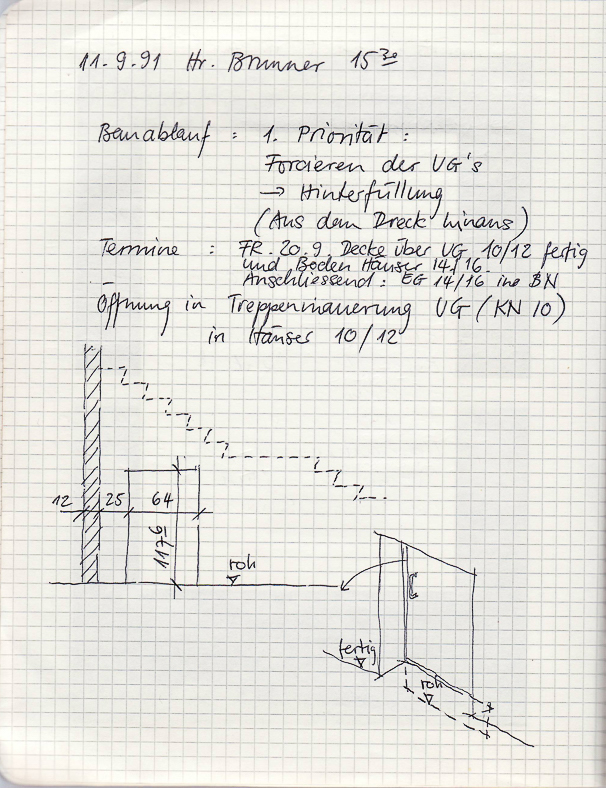 11.9.91 Hr. Brunner 15³⁰
Bauablauf : 1. Priorität :
Forcieren der UG's
→ Hinterfüllung
(Aus dem Dreck hinaus)
Termine : FR. 20.9. Decke über UG 10/12 fertig
und Boden Häuser 14/16.
Anschliessend : EG 14/16 ine BN
Öffnung in Treppenmauerung UG (KN 10)
in Häuser 10/12
12 25 64
117⁶
roh
fertig
roh